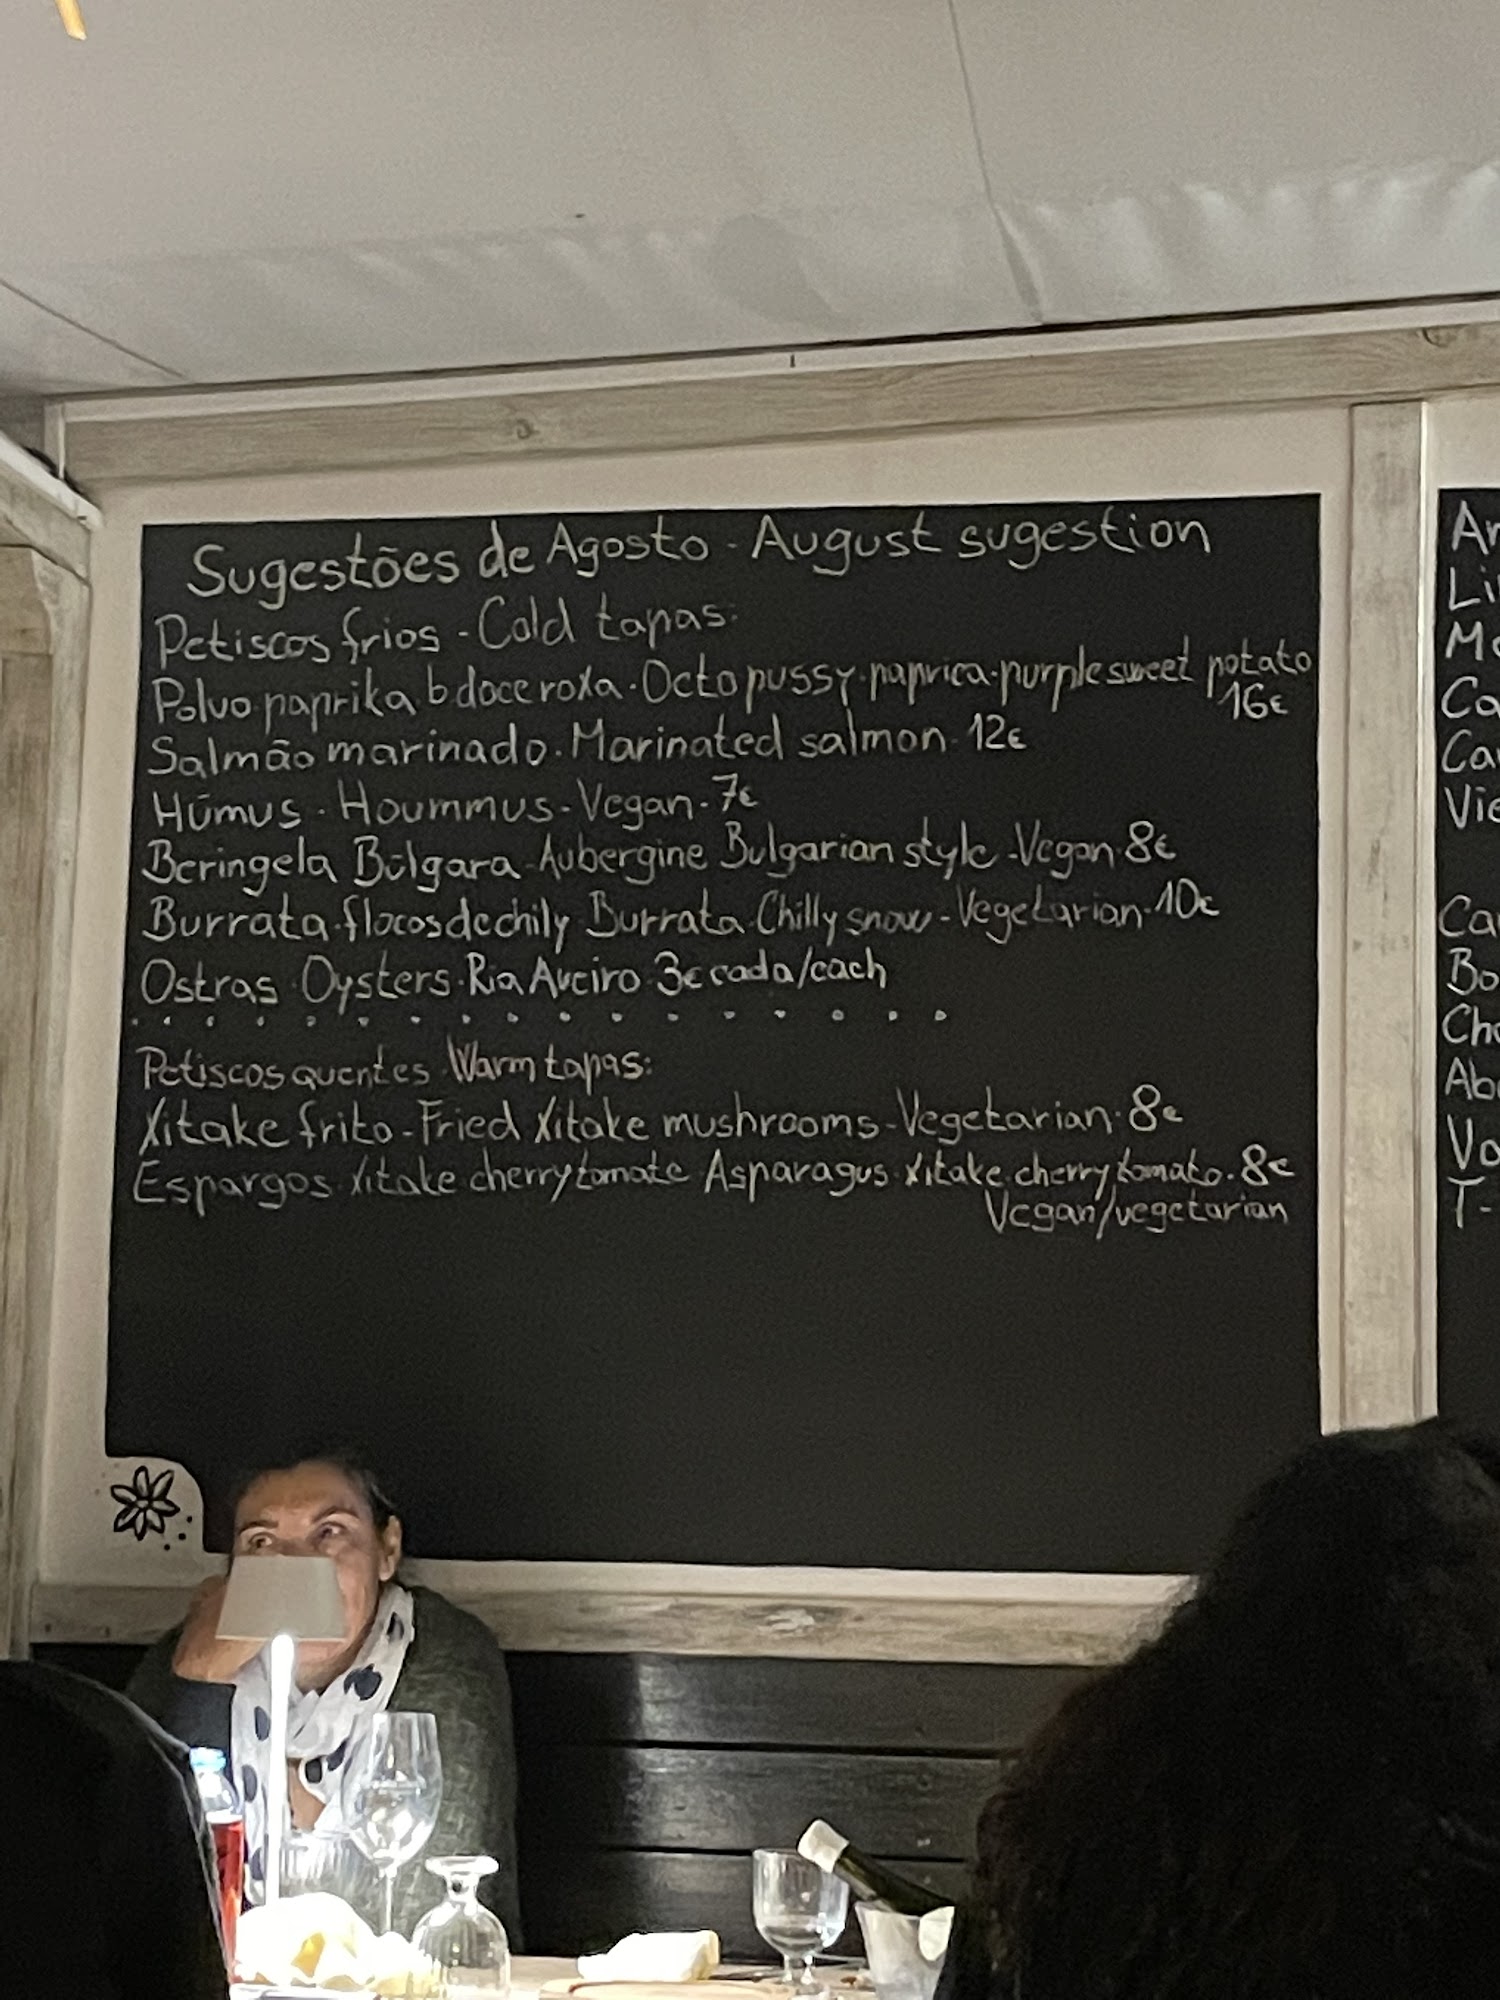 Sugestões de Agosto - August sugestion
Petiscos frios - Cold tapas:
Polvo.paprika b.doce roxa.Octopussy.paprica.purple sweet potato
16€
Salmão marinado. Marinated salmon. 12€
Húmus. Hoummus-Vegan-7€
Beringela Búlgara-Aubergine Bulgarian style-Vegan.8€
Burrata.flocos de chily Burrata.Chilly snow-Vegetarian.10€
Ostras. Oysters.Ria Aveiro 3€ cada/each
Petiscos quentes. Warm tapas:
Xitake frito-Fried Xitake mushrooms-Vegetarian.8€
Espargos.Xitake cherry tomate Asparagus.Xitake.cherry tomato.8€
Vegan/vegetarian
Ar
Li
Ca
Ca
Vie
Ca
Bo
Che
T-